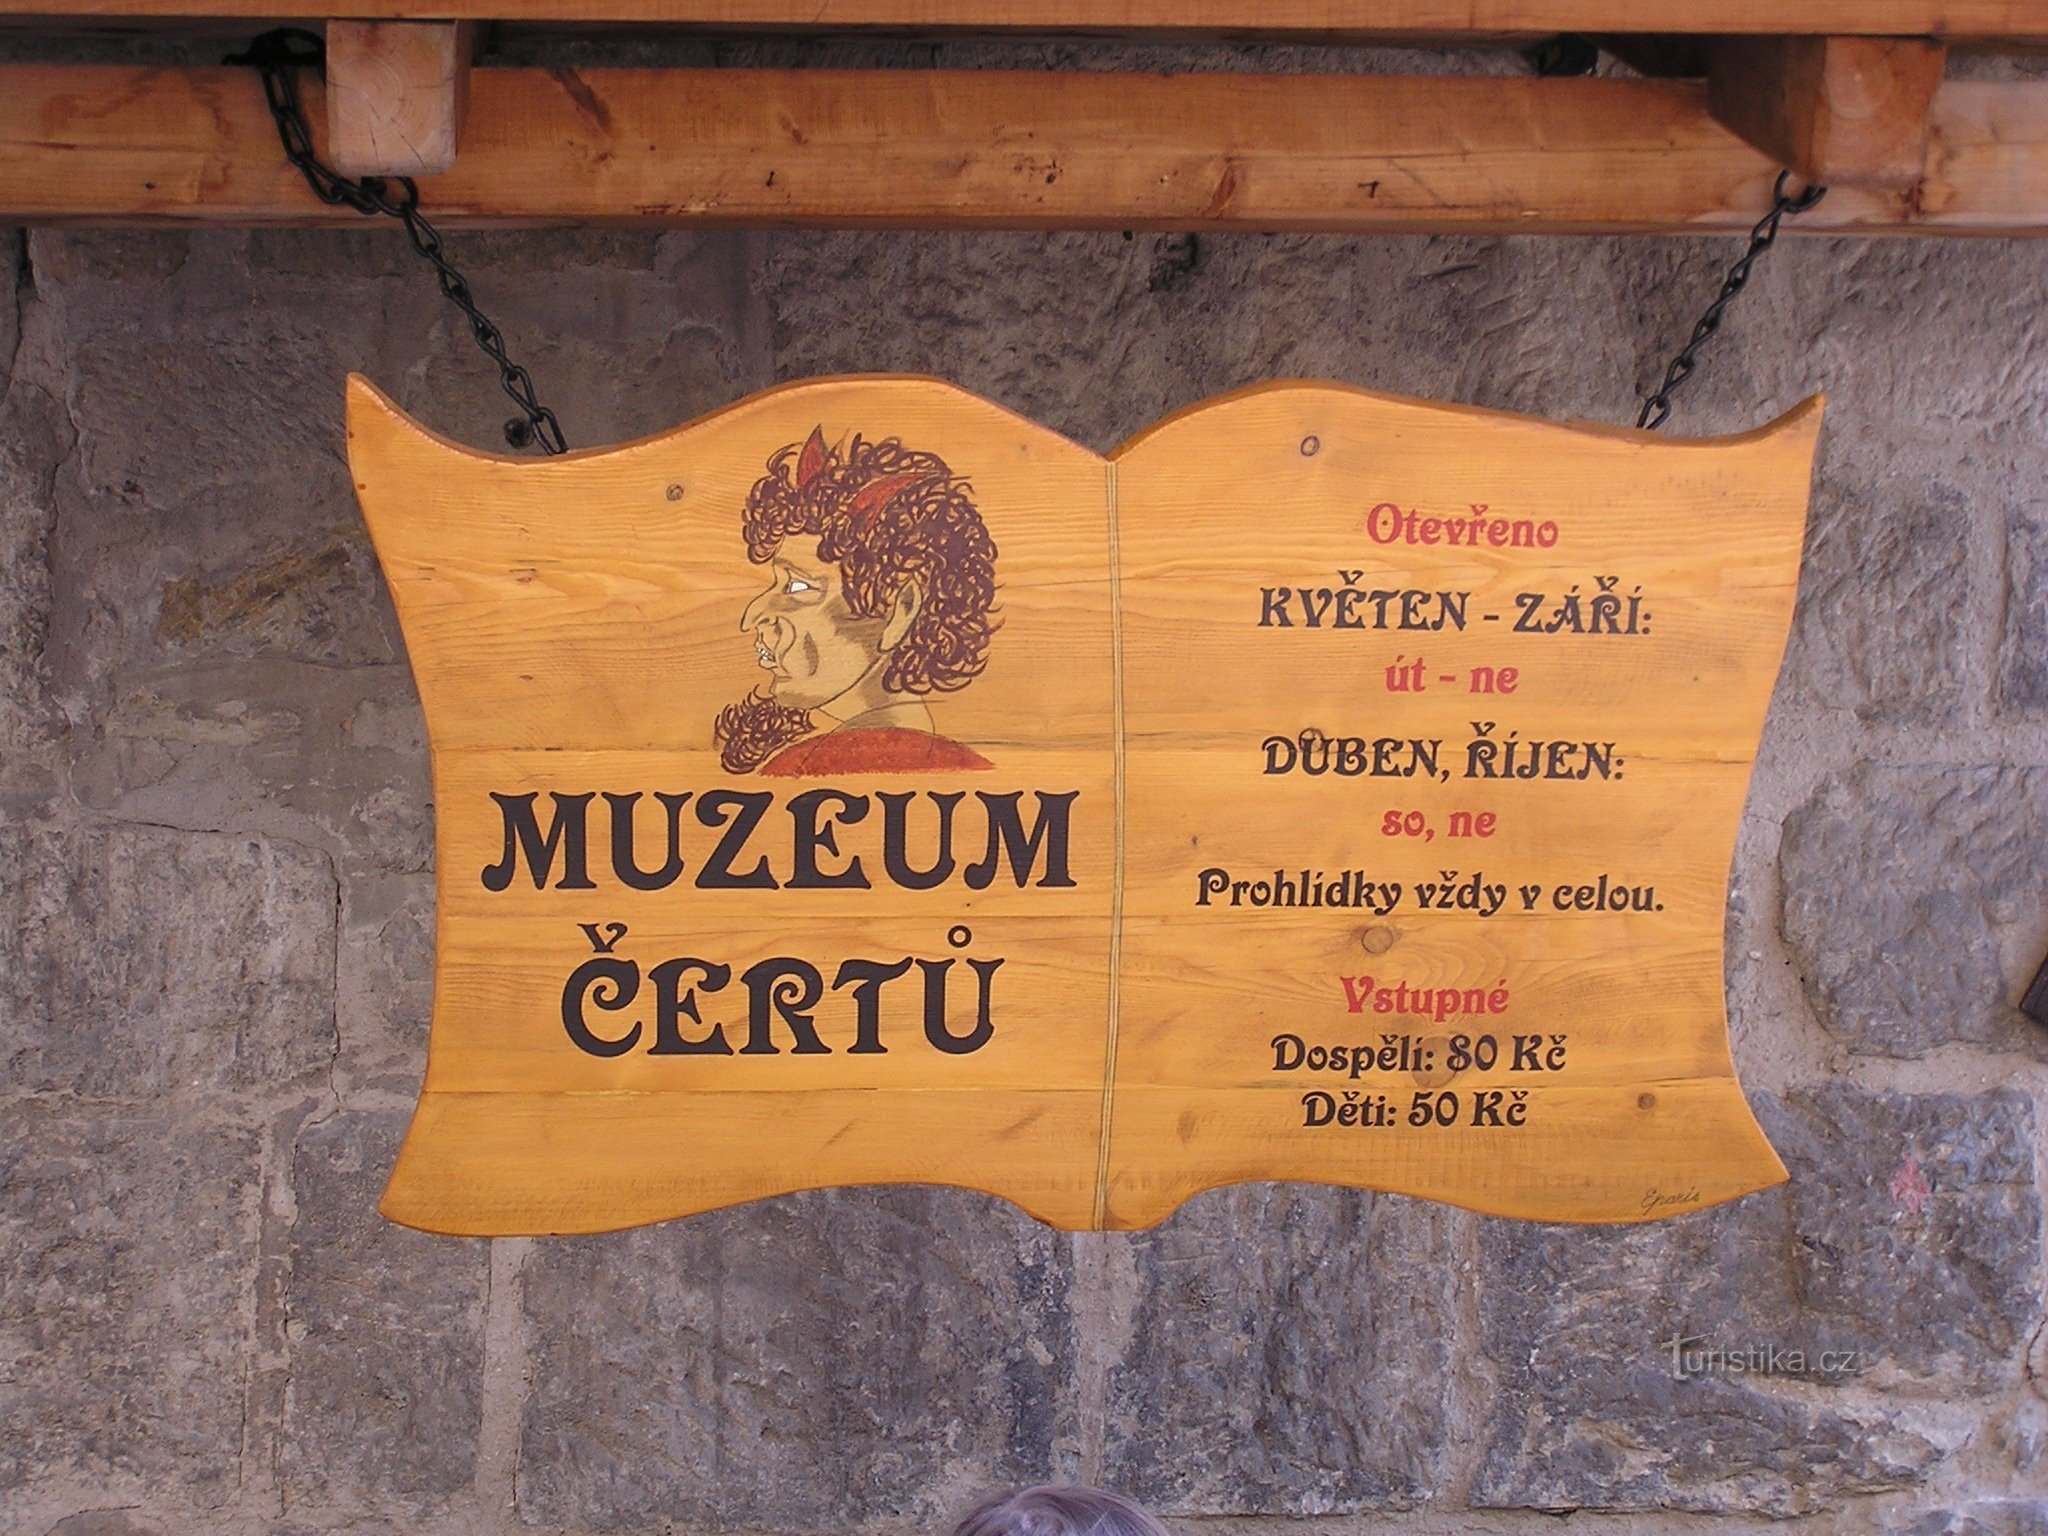 MUZEUM
ČERTŮ
Otevřeno
KVĚTEN - ZÁŘÍ:
út - ne
DUBEN, ŘÍJEN:
so, ne
Prohlídky vždy v celou.
Vstupné
Dospělí: 80 Kč
Děti: 50 Kč
Turistika.cz